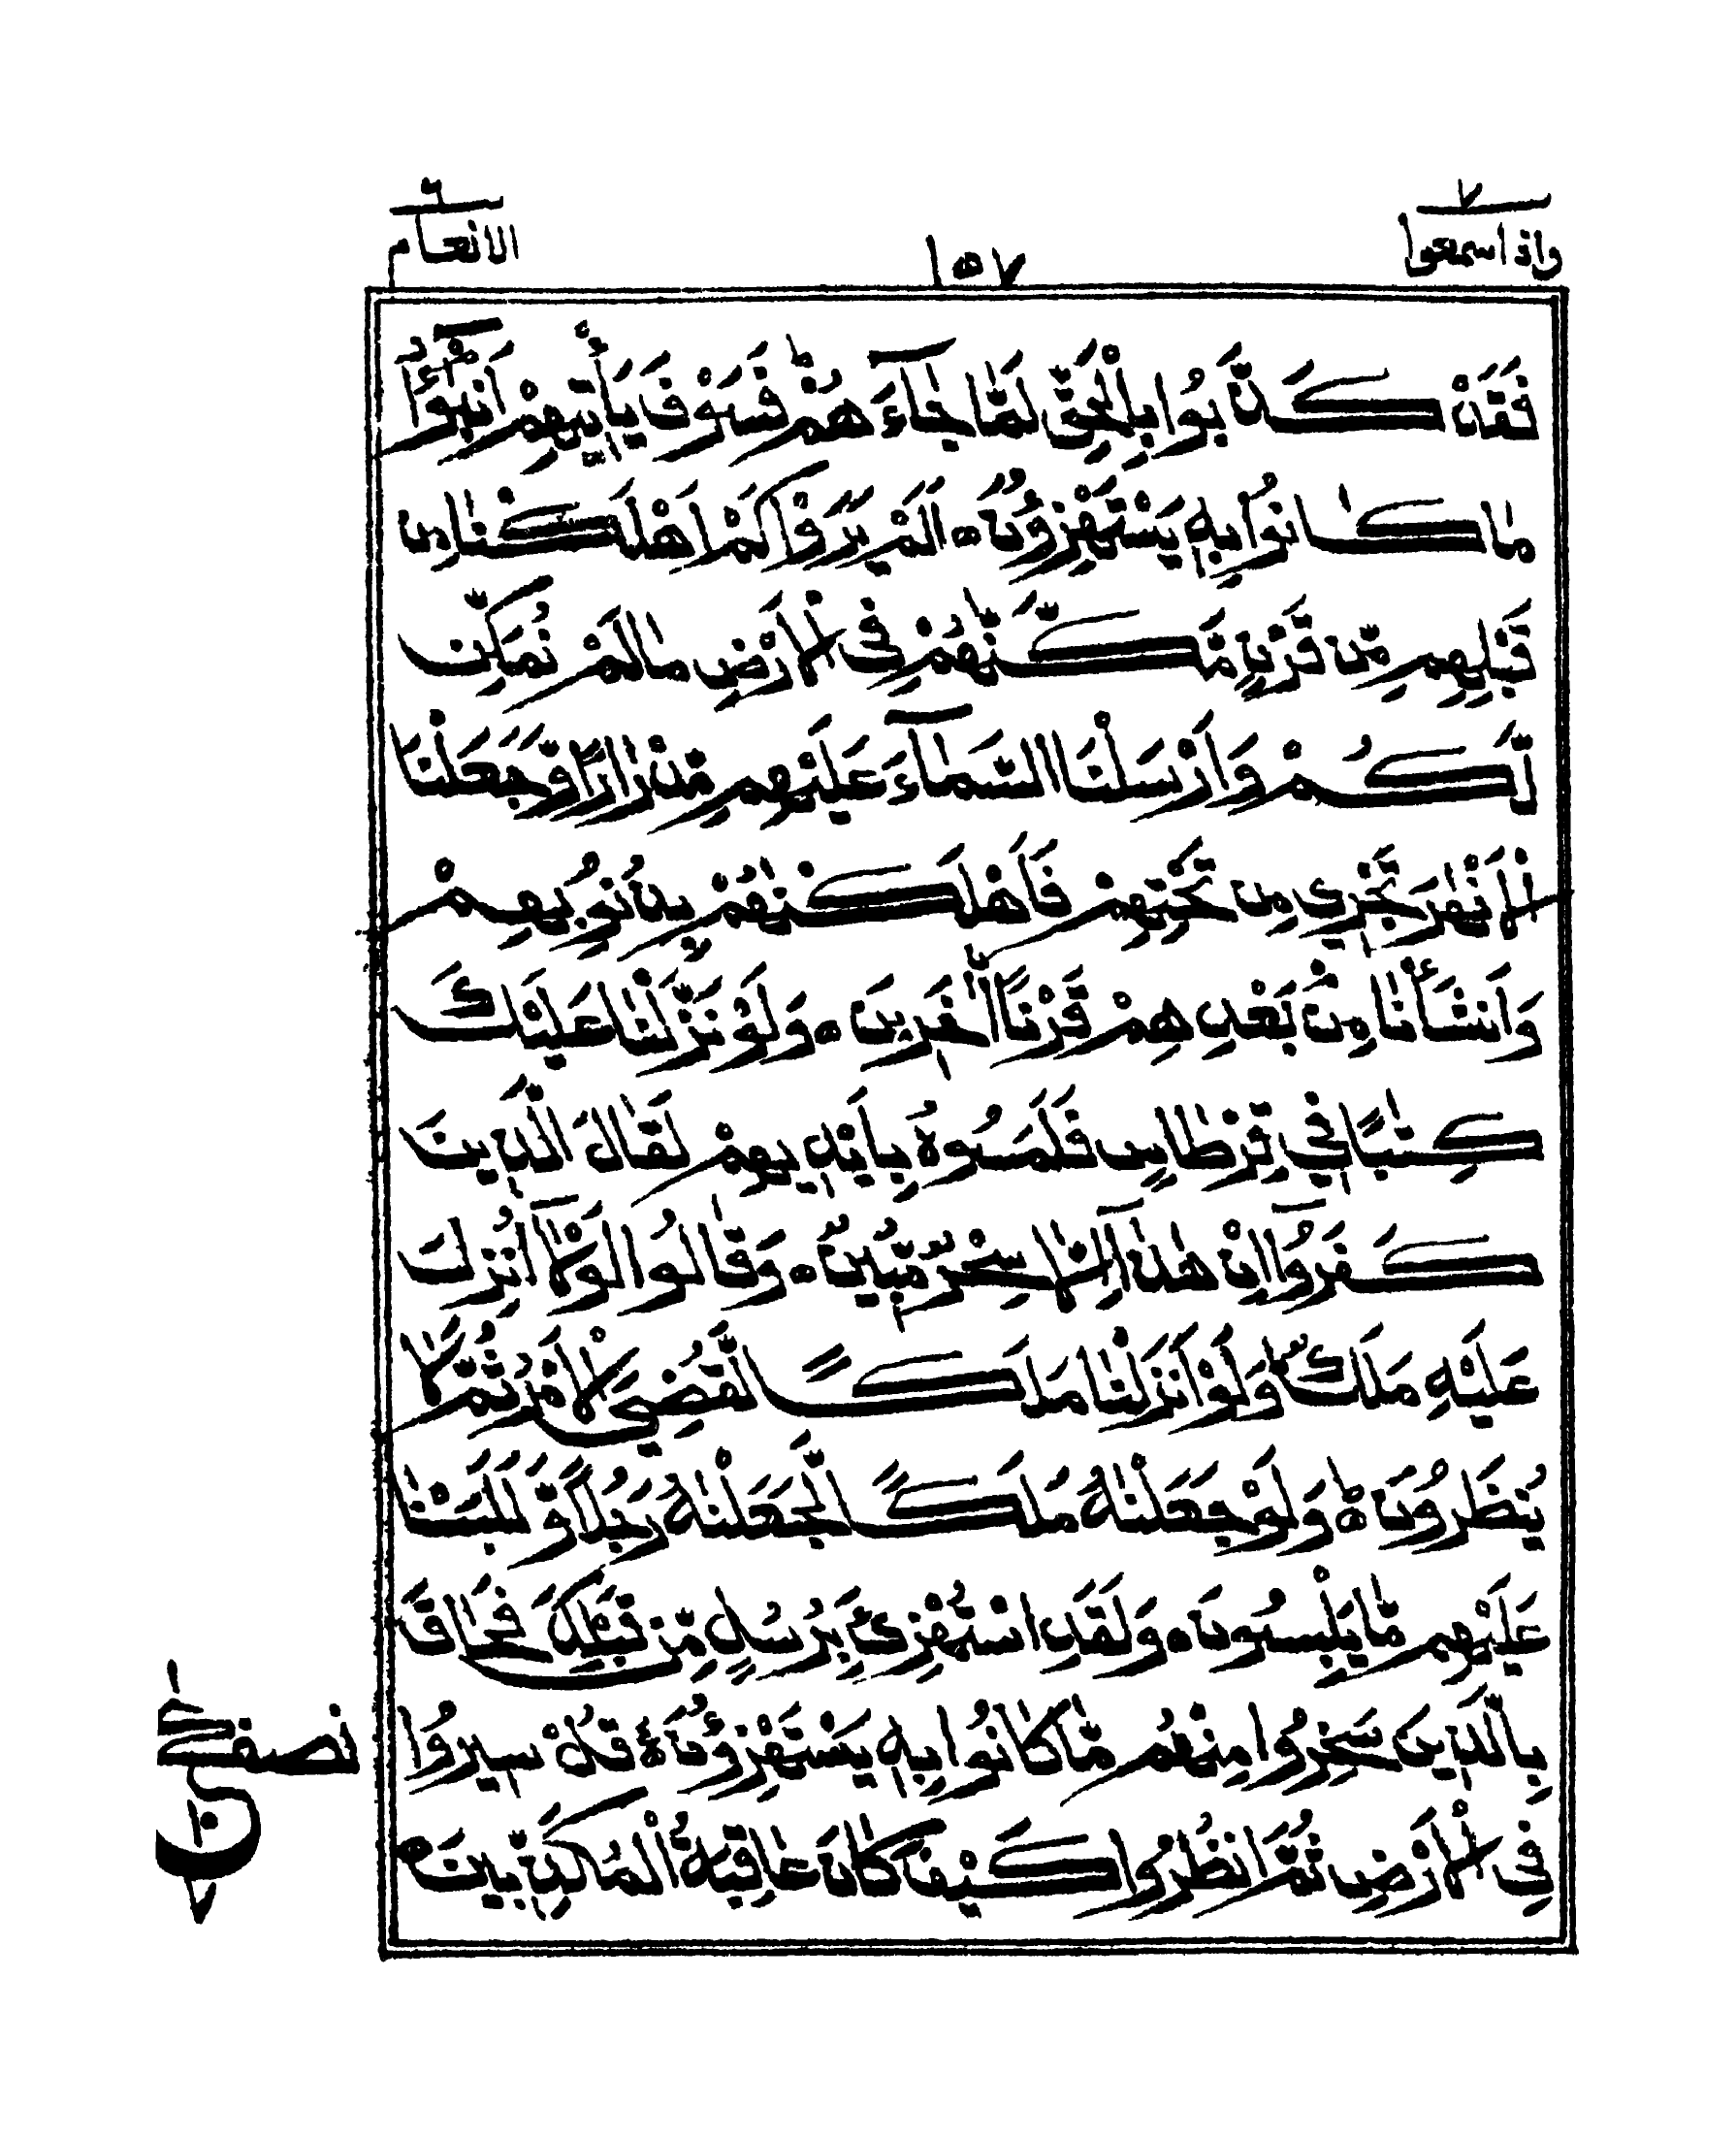 واذاسمعوا ٧
١٥٧
الانعام ٦
فَقَدْ كَذَّبُوا بِالْحَقِّ لَمَّا جَآءَهُمْ ؕ فَسَوْفَ يَأْتِيْهِمْ اَنْۢبٰٓؤُا
مَا كَانُوْا بِهٖ يَسْتَهْزِءُوْنَ ۝ اَلَمْ يَرَوْا كَمْ اَهْلَكْنَا مِنْ
قَبْلِهِمْ مِّنْ قَرْنٍ مَّكَّنّٰهُمْ فِى الْاَرْضِ مَا لَمْ نُمَكِّنْ
لَّكُمْ وَاَرْسَلْنَا السَّمَآءَ عَلَيْهِمْ مِّدْرَارًا وَّجَعَلْنَا
الْاَنْهٰرَ تَجْرِيْ مِنْ تَحْتِهِمْ فَاَهْلَكْنٰهُمْ بِذُنُوْبِهِمْ
وَاَنْشَأْنَا مِنْۢ بَعْدِهِمْ قَرْنًا اٰخَرِيْنَ ۝ وَلَوْ نَزَّلْنَا عَلَيْكَ
كِتٰبًا فِيْ قِرْطَاسٍ فَلَمَسُوْهُ بِاَيْدِيْهِمْ لَقَالَ الَّذِيْنَ
كَفَرُوْٓا اِنْ هٰذَآ اِلَّا سِحْرٌ مُّبِيْنٌ ۝ وَقَالُوْا لَوْلَآ اُنْزِلَ
عَلَيْهِ مَلَكٌ ؕ وَلَوْ اَنْزَلْنَا مَلَكًا لَّقُضِيَ الْاَمْرُ ثُمَّ لَا
يُنْظَرُوْنَ ۝ وَلَوْ جَعَلْنٰهُ مَلَكًا لَّجَعَلْنٰهُ رَجُلًا وَّلَلَبَسْنَا
عَلَيْهِمْ مَّا يَلْبِسُوْنَ ۝ وَلَقَدِ اسْتُهْزِئَ بِرُسُلٍ مِّنْ قَبْلِكَ فَحَاقَ
بِالَّذِيْنَ سَخِرُوْا مِنْهُمْ مَّا كَانُوْا بِهٖ يَسْتَهْزِءُوْنَ ۝ قُلْ سِيْرُوْا
فِى الْاَرْضِ ثُمَّ انْظُرُوْا كَيْفَ كَانَ عَاقِبَةُ الْمُكَذِّبِيْنَ ۝
نصف
ع
١٠
٧